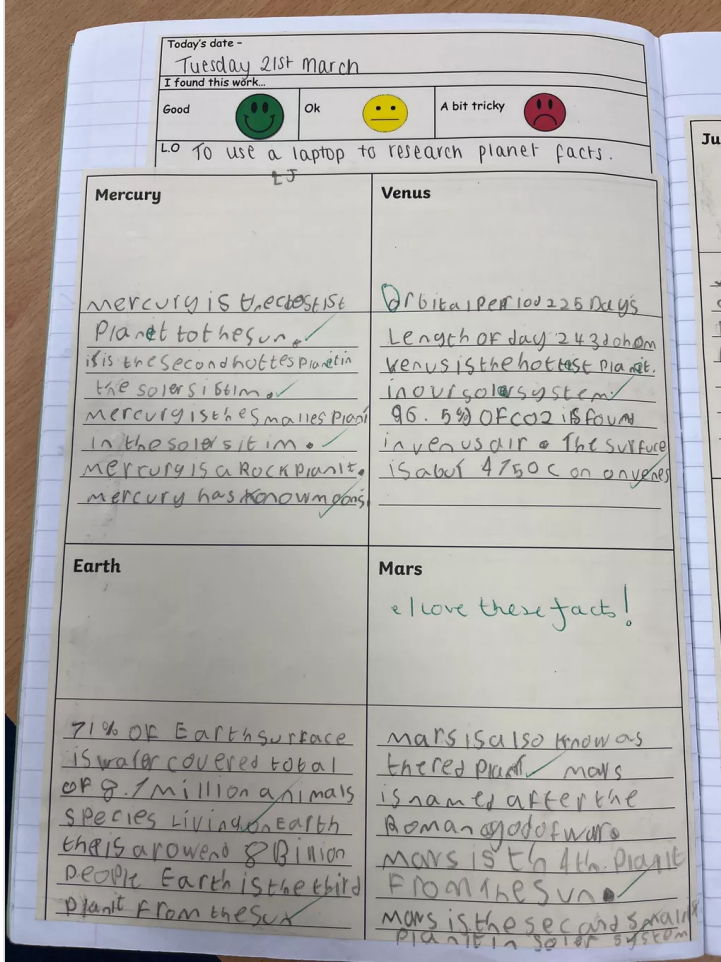 Today's date –
Tuesday 21st March
I found this work...
Good
Ok
A bit tricky
L.O To use a laptop to research planet facts.
LJ
Mercury
mercury is the clostist
Planet to the sun.
it is the second hottes planet in
the soler sistim.
mercury is the smalles Planit
in the soler sitim.
mercury is a Rock planit.
mercury has know moons
Venus
Orbital Period 225 Days
Length of day 243d 0h 0m
Venus is the hottest planit.
in our soler system
96.5% of CO2 is found
in venus air. The surface
is about 4750 C on
Earth
71% of Earth surface
is water covered total
of 8.7 million animals
species Living on Earth
their is arowend 8 Billion
People Earth is the third
planit from the sun
Mars
I love these facts!
mars is also know as
the red planit mars
is named after the
Roman god of war.
mars is th 4th. Planit
From the sun.
mars is the second
planit in soler system
Ju